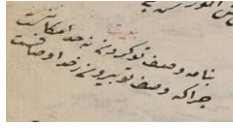 بیت
بنامه وصف تو کردن نه حد امکانست
چرا که وصف تو بیرون ز حد اوصافست